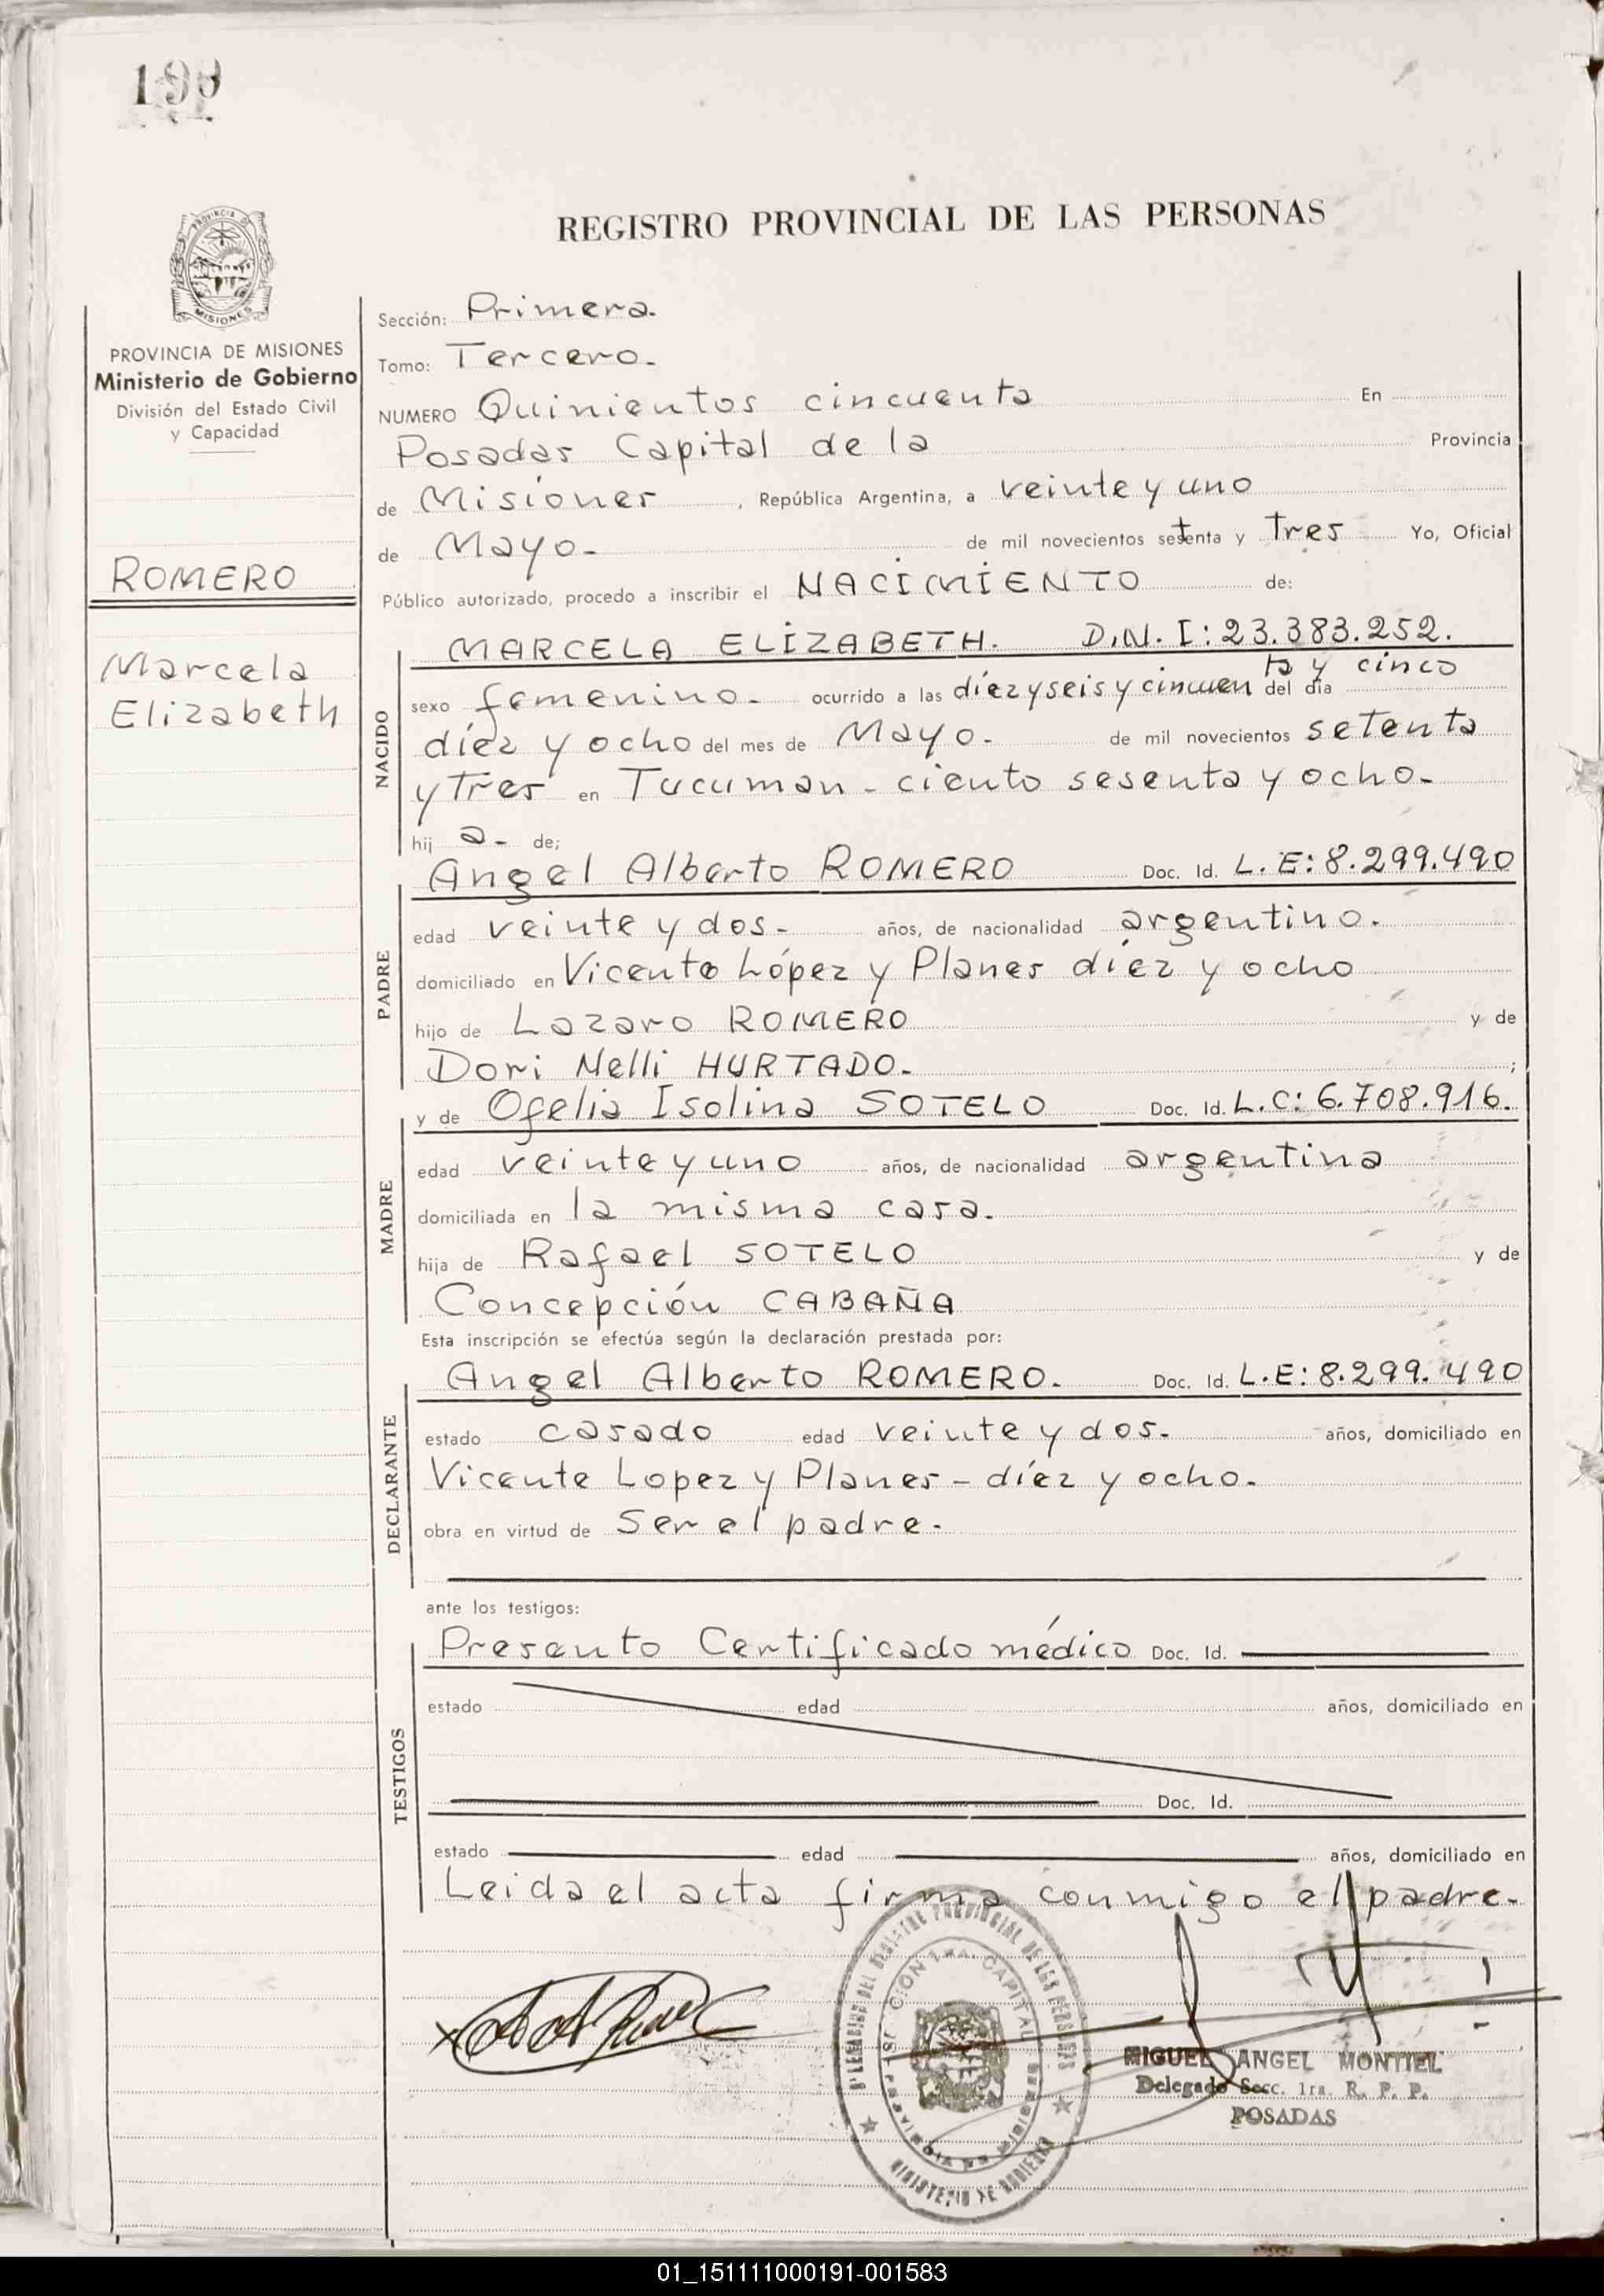 199
REGISTRO PROVINCIAL DE LAS PERSONAS
MISIONES
PROVINCIA DE MISIONES
Ministerio de Gobierno
División del Estado Civil
y Capacidad
ROMERO
Marcela
Elizabeth
Sección: Primera.
Tomo: Tercero.
NUMERO Quinientos cincuenta En
Posadas Capital de la Provincia
de Misiones, República Argentina, a veinte y uno
de Mayo- de mil novecientos setenta y Tres Yo, Oficial
Público autorizado, procedo a inscribir el NACIMIENTO de:
MARCELA ELIZABETH. D.N.I: 23.383.252.
ta y cinco
sexo femenino- ocurrido a las diez y seis y cincuen del día
diez y ocho del mes de Mayo- de mil novecientos setenta
y Tres en Tucuman - ciento sesenta y ocho-
hij a- de;
NACIDO
Angel Alberto ROMERO Doc. Id. L.E: 8.299.490
edad veinte y dos- años, de nacionalidad argentino.
domiciliado en Vicente López y Planes diez y ocho
hijo de Lazaro ROMERO y de
Dori Nelli HURTADO- ;
PADRE
y de Ofelia Isolina SOTELO Doc. Id. L.C: 6.708.916.
edad veinte y uno años, de nacionalidad argentina
domiciliada en la misma casa.
hija de Rafael SOTELO y de
Concepción CABAÑA
MADRE
Esta inscripción se efectúa según la declaración prestada por:
Angel Alberto ROMERO. Doc. Id. L.E: 8.299.490
estado casado edad veinte y dos- años, domiciliado en
Vicente Lopez y Planes - díez y ocho-
obra en virtud de Ser el padre-
DECLARANTE
ante los testigos:
Presento Certificado médico Doc. Id.
estado edad años, domiciliado en
Doc. Id.
estado edad años, domiciliado en
TESTIGOS
Leida el acta firma conmigo el padre-
CAPITAL
MIGUEL ANGEL MONTIEL
Delegado Secc. 1ra. R. P. P.
POSADAS
01_151111000191-001583